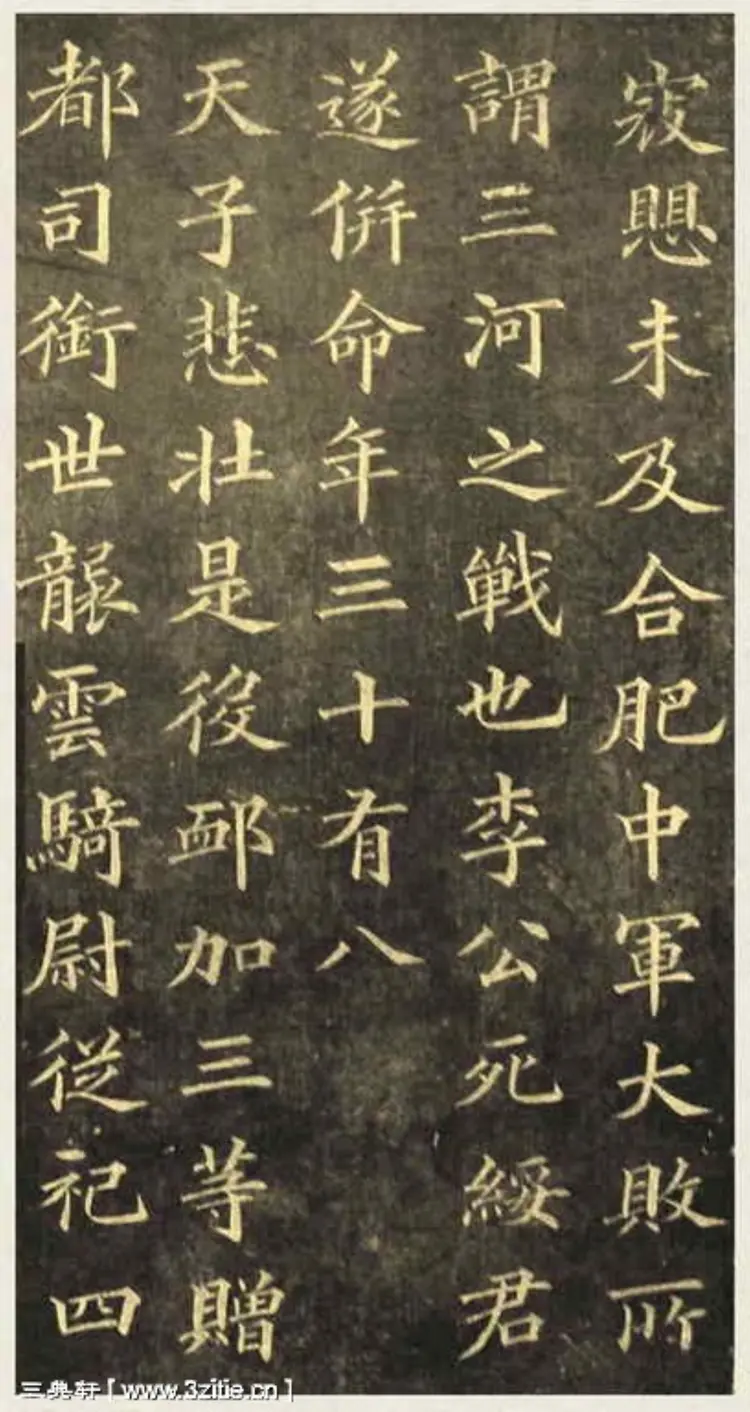 寇思未及合肥中軍大敗所
謂三河之戰也李公死綏君
遂併命年三十有八
天子悲壯是役卹加三等贈
都司銜世襲雲騎尉從祀四
三典轩[www.3zitie.cn]